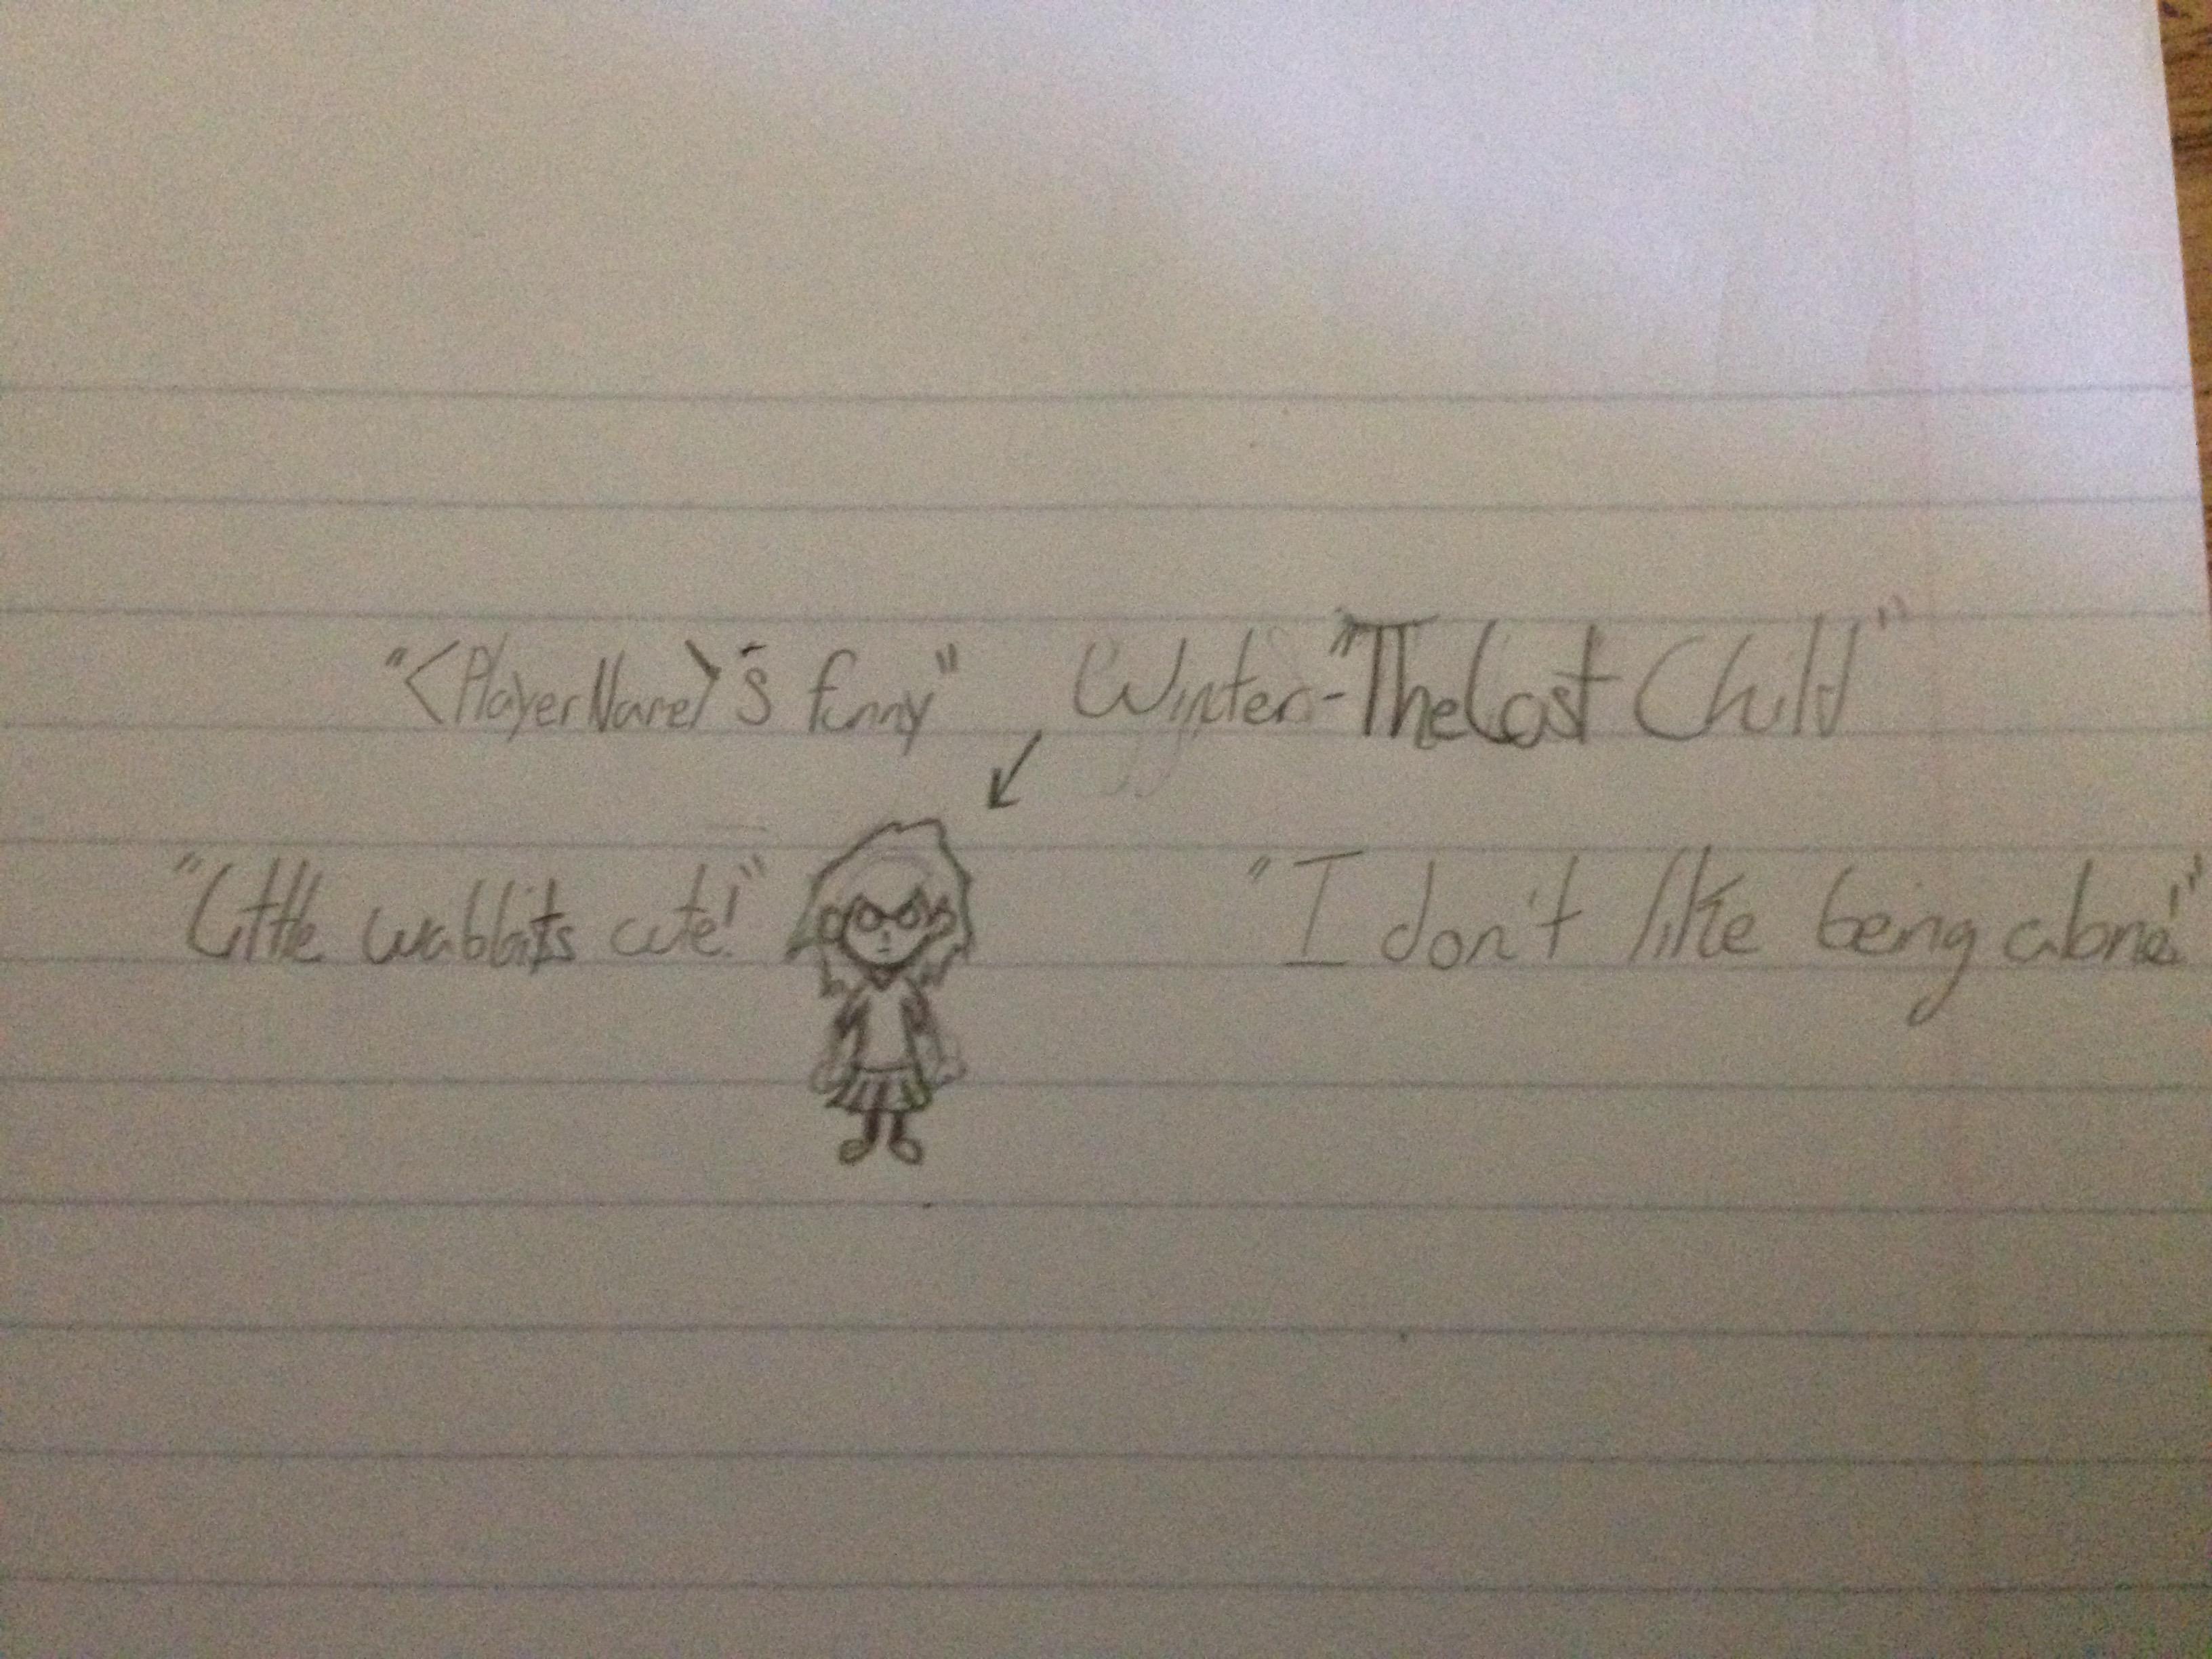 "<PlayerName>'s funny"
Winter-"The Lost Child"
"Little wabbits cute!"
"I don't like being alone!"